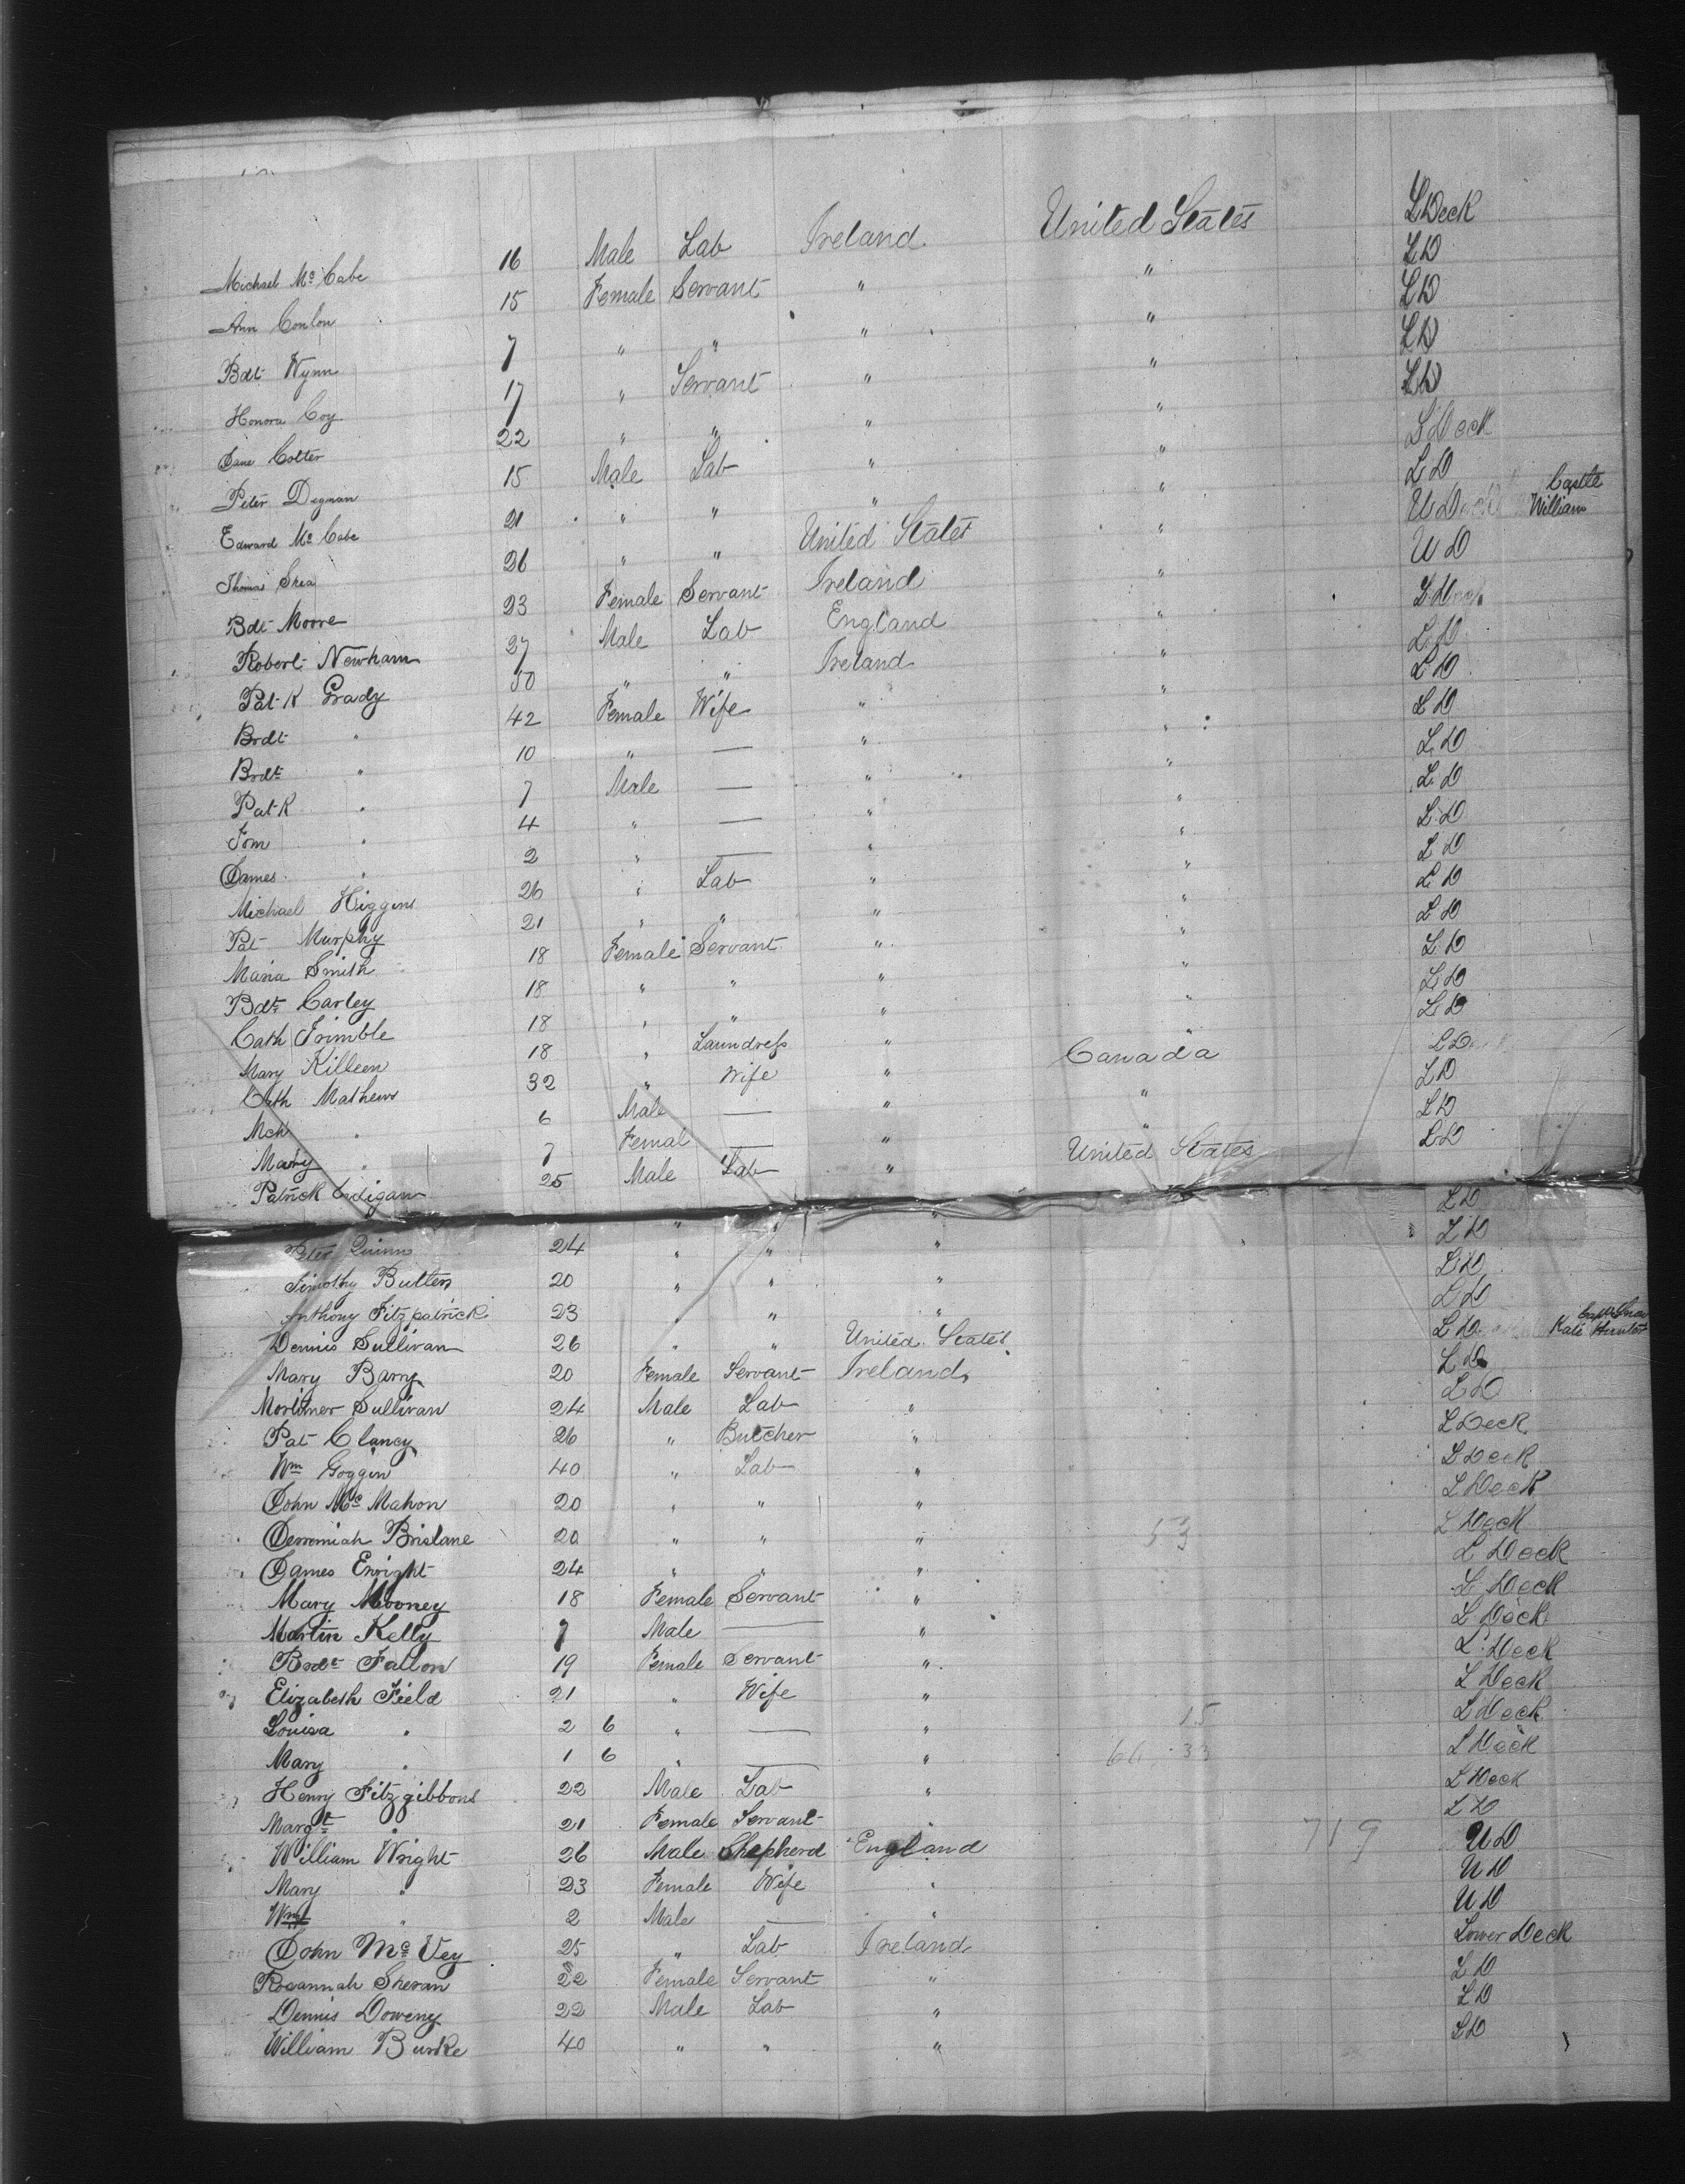 Michael Mc Cabe 16 Male Lab Ireland United States L Deck
Ann Conlon 15 Female Servant " " LD
Bdt Wynn 7 " " " " LD
Honora Coy 17 " Servant " " LD
Jane Cotter 22 " " " " LD
Peter Degnan 15 Male Lab " " L Deck
Edward Mc Cabe 21 " " " " LD
Thomas Shea 26 " " United States " U Deck Castle William
Bdt Moore 23 Female Servant Ireland " U D
Robert Newham 27 Male Lab England " L Deck
Pat-k Grady 50 " " Ireland " LD
Brdt " 42 Female Wife " " LD
Brdt " 10 " — " " LD
Pat-k " 7 Male — " " LD
Tom " 4 " — " " LD
James " 2 " — " " LD
Michael Higgins 26 " Lab " " LD
Pat Murphy 21 " " " " LD
Maria Smith 18 Female Servant " " LD
Bdt Carley 18 " " " " LD
Cath Trimble 18 " " " " LD
Mary Killeen 18 " Laundress " " LD
Cath Mathews 32 " Wife " Canada LD
Mch " 6 Male — " " LD
Mary " 7 Femal — " " LD
Patrick Cadigan 25 Male Lab " United States LD
" " " LD
Peter Quinn 24 " " " LD
Timothy Butler 20 " " " LD
Anthony Fitzpatrick 23 " " " LD
Dennis Sullivan 26 " " United States LD Kate Hunter
Mary Barry 20 Female Servant Ireland LD
Mortimer Sullivan 24 Male Lab " LD
Pat Clancy 26 " Butcher " L Deck
Wm Goggin 40 " Lab " L Deck
John Mc Mahon 20 " " " L Deck
Jeremiah Brislane 20 " " " 53 L Deck
James Enright 24 " " " L Deck
Mary Mooney 18 Female Servant " L Deck
Martin Kelly 7 Male — " L Deck
Brdt Fallon 19 Female Servant " L Deck
Elizabeth Field 21 " Wife " L Deck
Louisa " 2 6 " — " 15 L Deck
Mary " 1 6 " — " 66 33 L Deck
Henry Fitzgibbons 22 Male Lab " L Deck
Margt " 21 Female Servant " LD
William Wright 26 Male Shepherd England 719 UD
Mary " 23 Female Wife " UD
Wm " 2 Male — " UD
John Mc Vey 25 " Lab Ireland Lower Deck
Rosannah Sheran 22 Female Servant " LD
Dennis Doweny 22 Male Lab " LD
William Burke 40 " " " LD